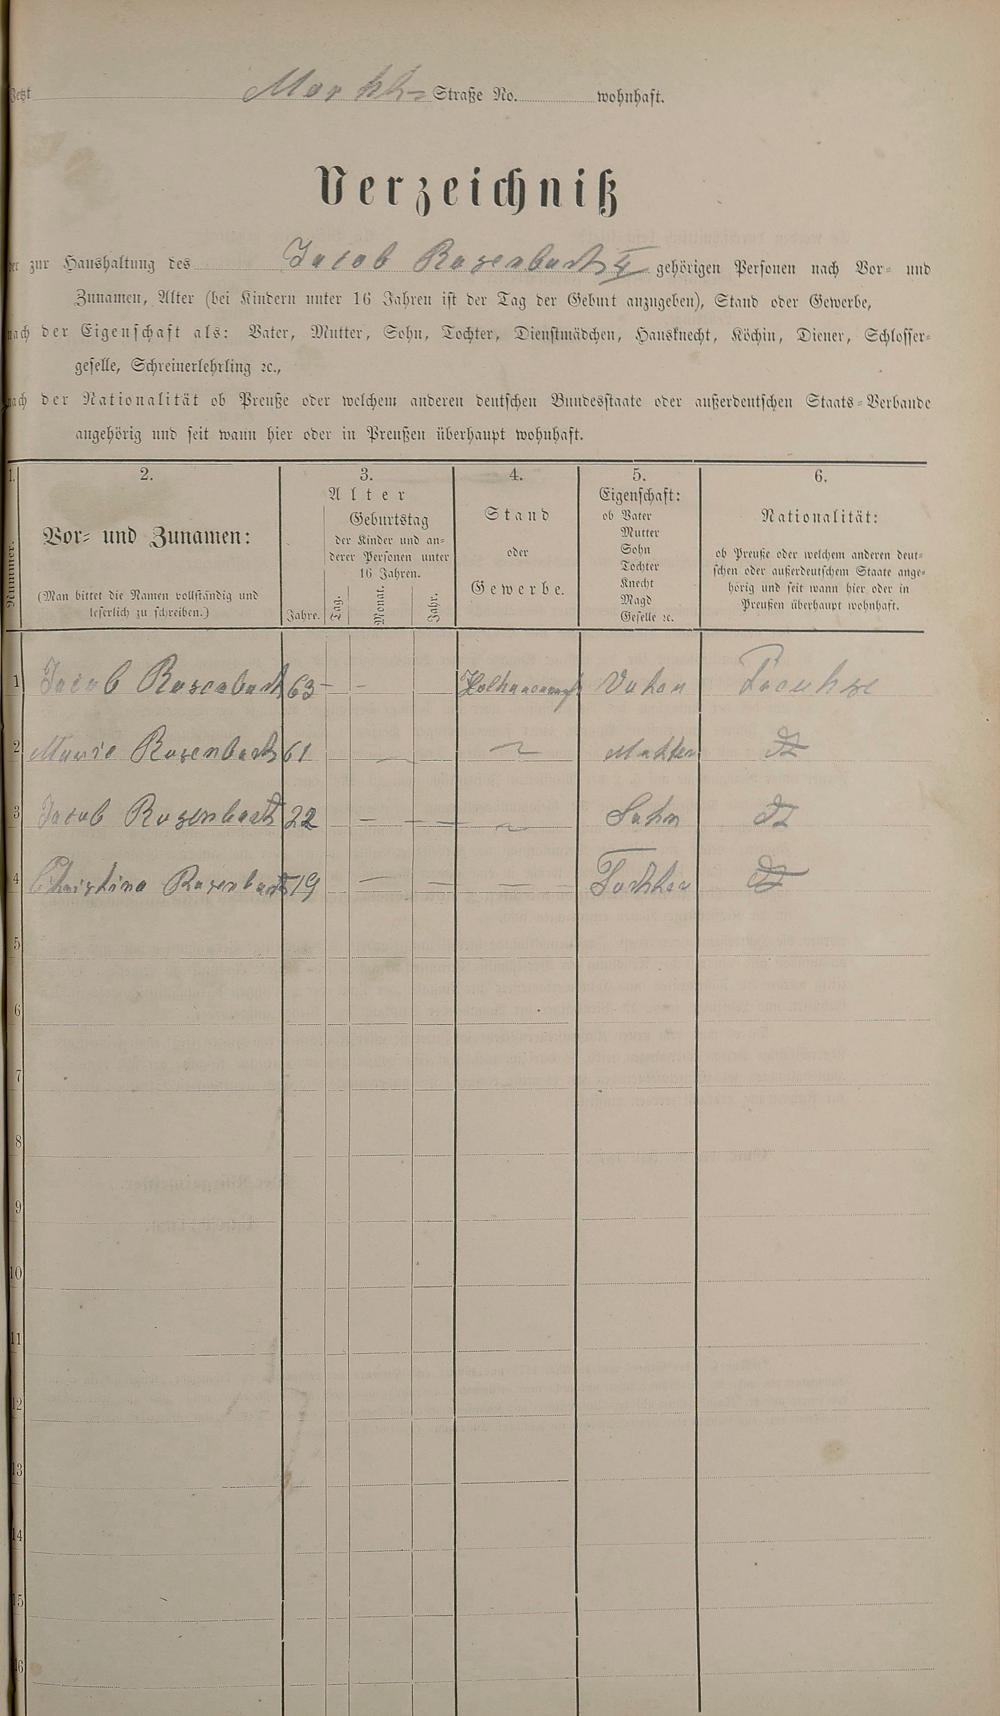 Jetzt Markt Straße No. wohnhaft.
Verzeichniß
der zur Haushaltung des Jacob Rosenbach gehörigen Personen nach Vor- und
Zunamen, Alter (bei Kindern unter 16 Jahren ist der Tag der Geburt anzugeben), Stand oder Gewerbe,
nach der Eigenschaft als: Vater, Mutter, Sohn, Tochter, Dienstmädchen, Hausknecht, Köchin, Diener, Schlosser-
geselle, Schreinerlehrling ꝛc.,
nach der Nationalität ob Preuße oder welchem anderen deutschen Bundesstaate oder außerdeutschen Staats-Verbande
angehörig und seit wann hier oder in Preußen überhaupt wohnhaft.
1.
Nummer.
2.
Vor- und Zunamen:
(Man bittet die Namen vollständig und
leserlich zu schreiben.)
3.
Alter
Geburtstag
der Kinder und an-
derer Personen unter
16 Jahren.
Jahre.
Tag.
Monat.
Jahr.
4.
Stand
oder
Gewerbe.
5.
Eigenschaft:
ob Vater
Mutter
Sohn
Tochter
Knecht
Magd
Geselle ꝛc.
6.
Nationalität:
ob Preuße oder welchem anderen deut-
schen oder außerdeutschem Staate ange-
hörig und seit wann hier oder in
Preußen überhaupt wohnhaft.
1 Jacob Rosenbach 63 – – Vater Preuße
2 Marie Rosenbach 61 – – Mutter dt
3 Jacob Rosenbach 22 – – – Sohn dt
4 Christina Rosenbach 19 – – – Tochter dt
5
6
7
8
9
10
11
12
13
14
15
16